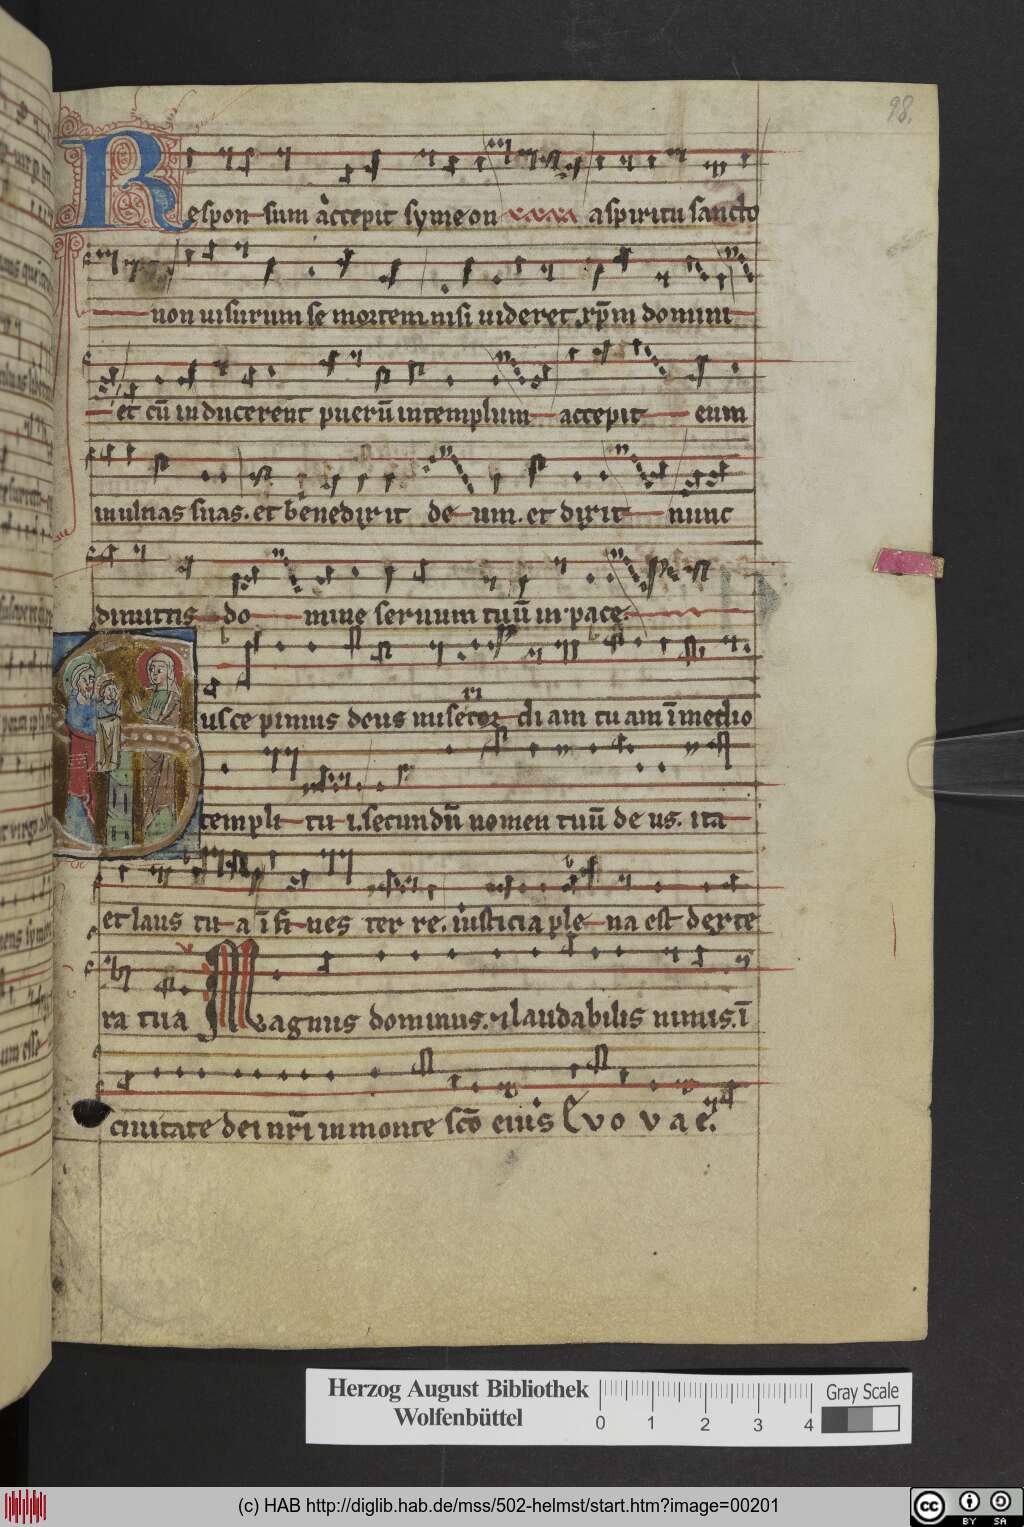 98.
Respon sum accepit symeon a spiritu sancto
non uisurum se mortem nisi uideret xp̄m domini
et cū inducerent puerū in templum accepit eum
in ulnas suas. et benedixit deum. et dixit nunc
dimittis domine seruum tuū in pace.
Suscepimus deus misericordiam tuam ī medio
templi tui. secundū nomen tuū deus. ita
et laus tua ī fines terre. iusticia plena est dexte
ra tua Magnus dominus. et laudabilis nimis. ī
ciuitate dei nr̄i in monte scō eius Euouae.
Herzog August Bibliothek
Wolfenbüttel
0 1 2 3 4
Gray Scale
(c) HAB http://diglib.hab.de/mss/502-helmst/start.htm?image=00201
cc BY SA